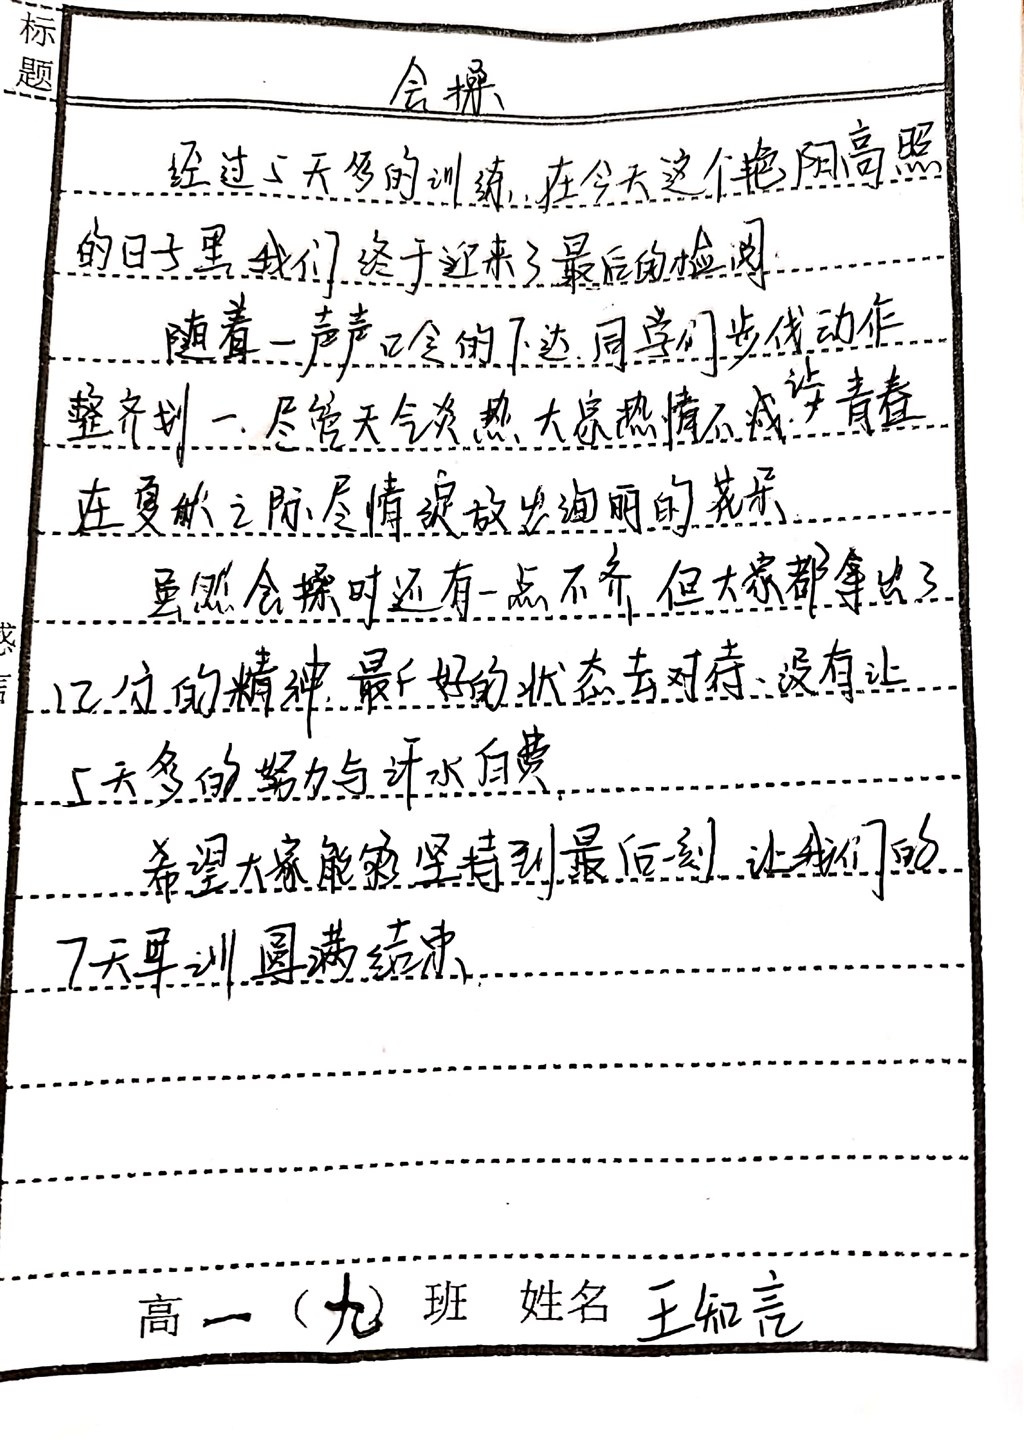 标题
会操
经过5天多的训练,在今天这个艳阳高照
的日子里,我们终于迎来了最后的检阅.
随着一声声口令的下达,同学们步伐动作
整齐划一、尽管天气炎热,大家热情不减,让青春
在夏秋之际,尽情绽放出绚丽的花朵.
虽然会操时还有一点不齐,但大家都拿出了
12分的精神,最好的状态去对待、没有让
5天多的努力与汗水白费.
希望大家能够坚持到最后一刻,让我们的
7天军训圆满结束.
感言
高一(九)班 姓名 王知言